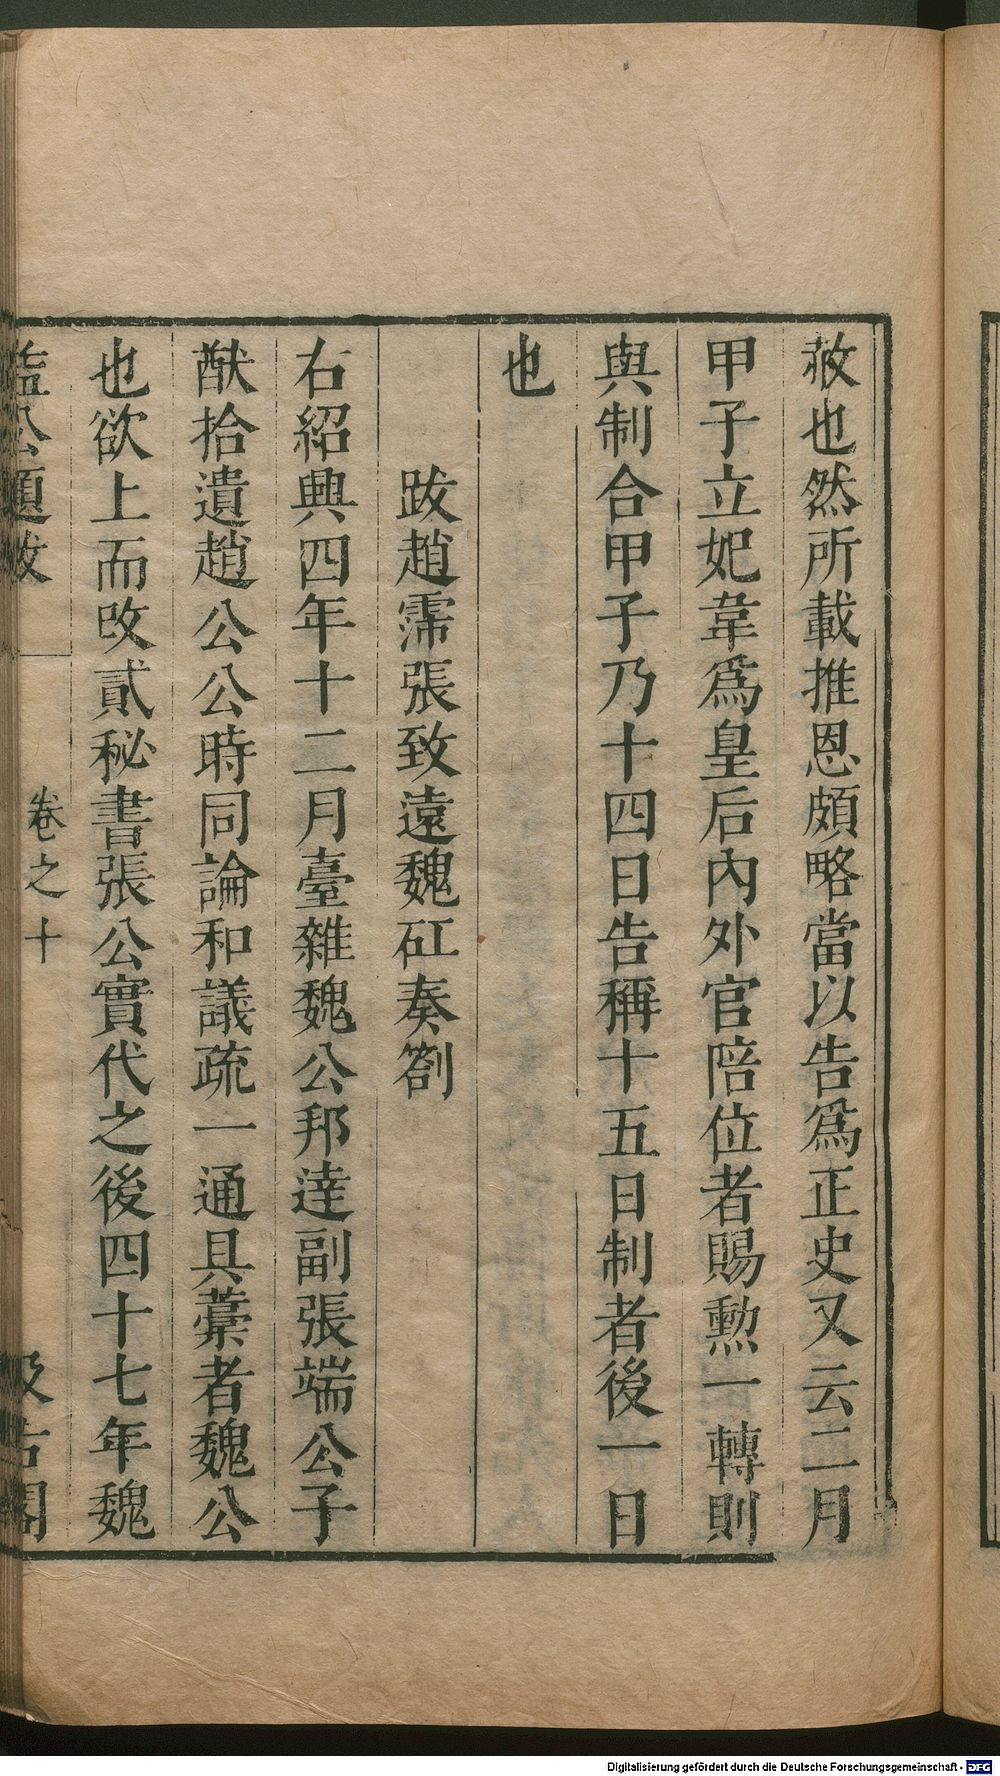 赦也然所載推恩頗略當以告爲正史又云二月
甲子立妃韋爲皇后內外官陪位者賜勲一轉則
與制合甲子乃十四日告稱十五日制者後一日
也
跋趙霈張致遠魏矼奏劄
右紹興四年十二月臺雜魏公邦達副張端公子
猷拾遺趙公公時同論和議疏一通具藁者魏公
也欲上而攺貳秘書張公實代之後四十七年魏
益公題跋
卷之十
汲古閣
Digitalisierung gefördert durch die Deutsche Forschungsgemeinschaft - DFG